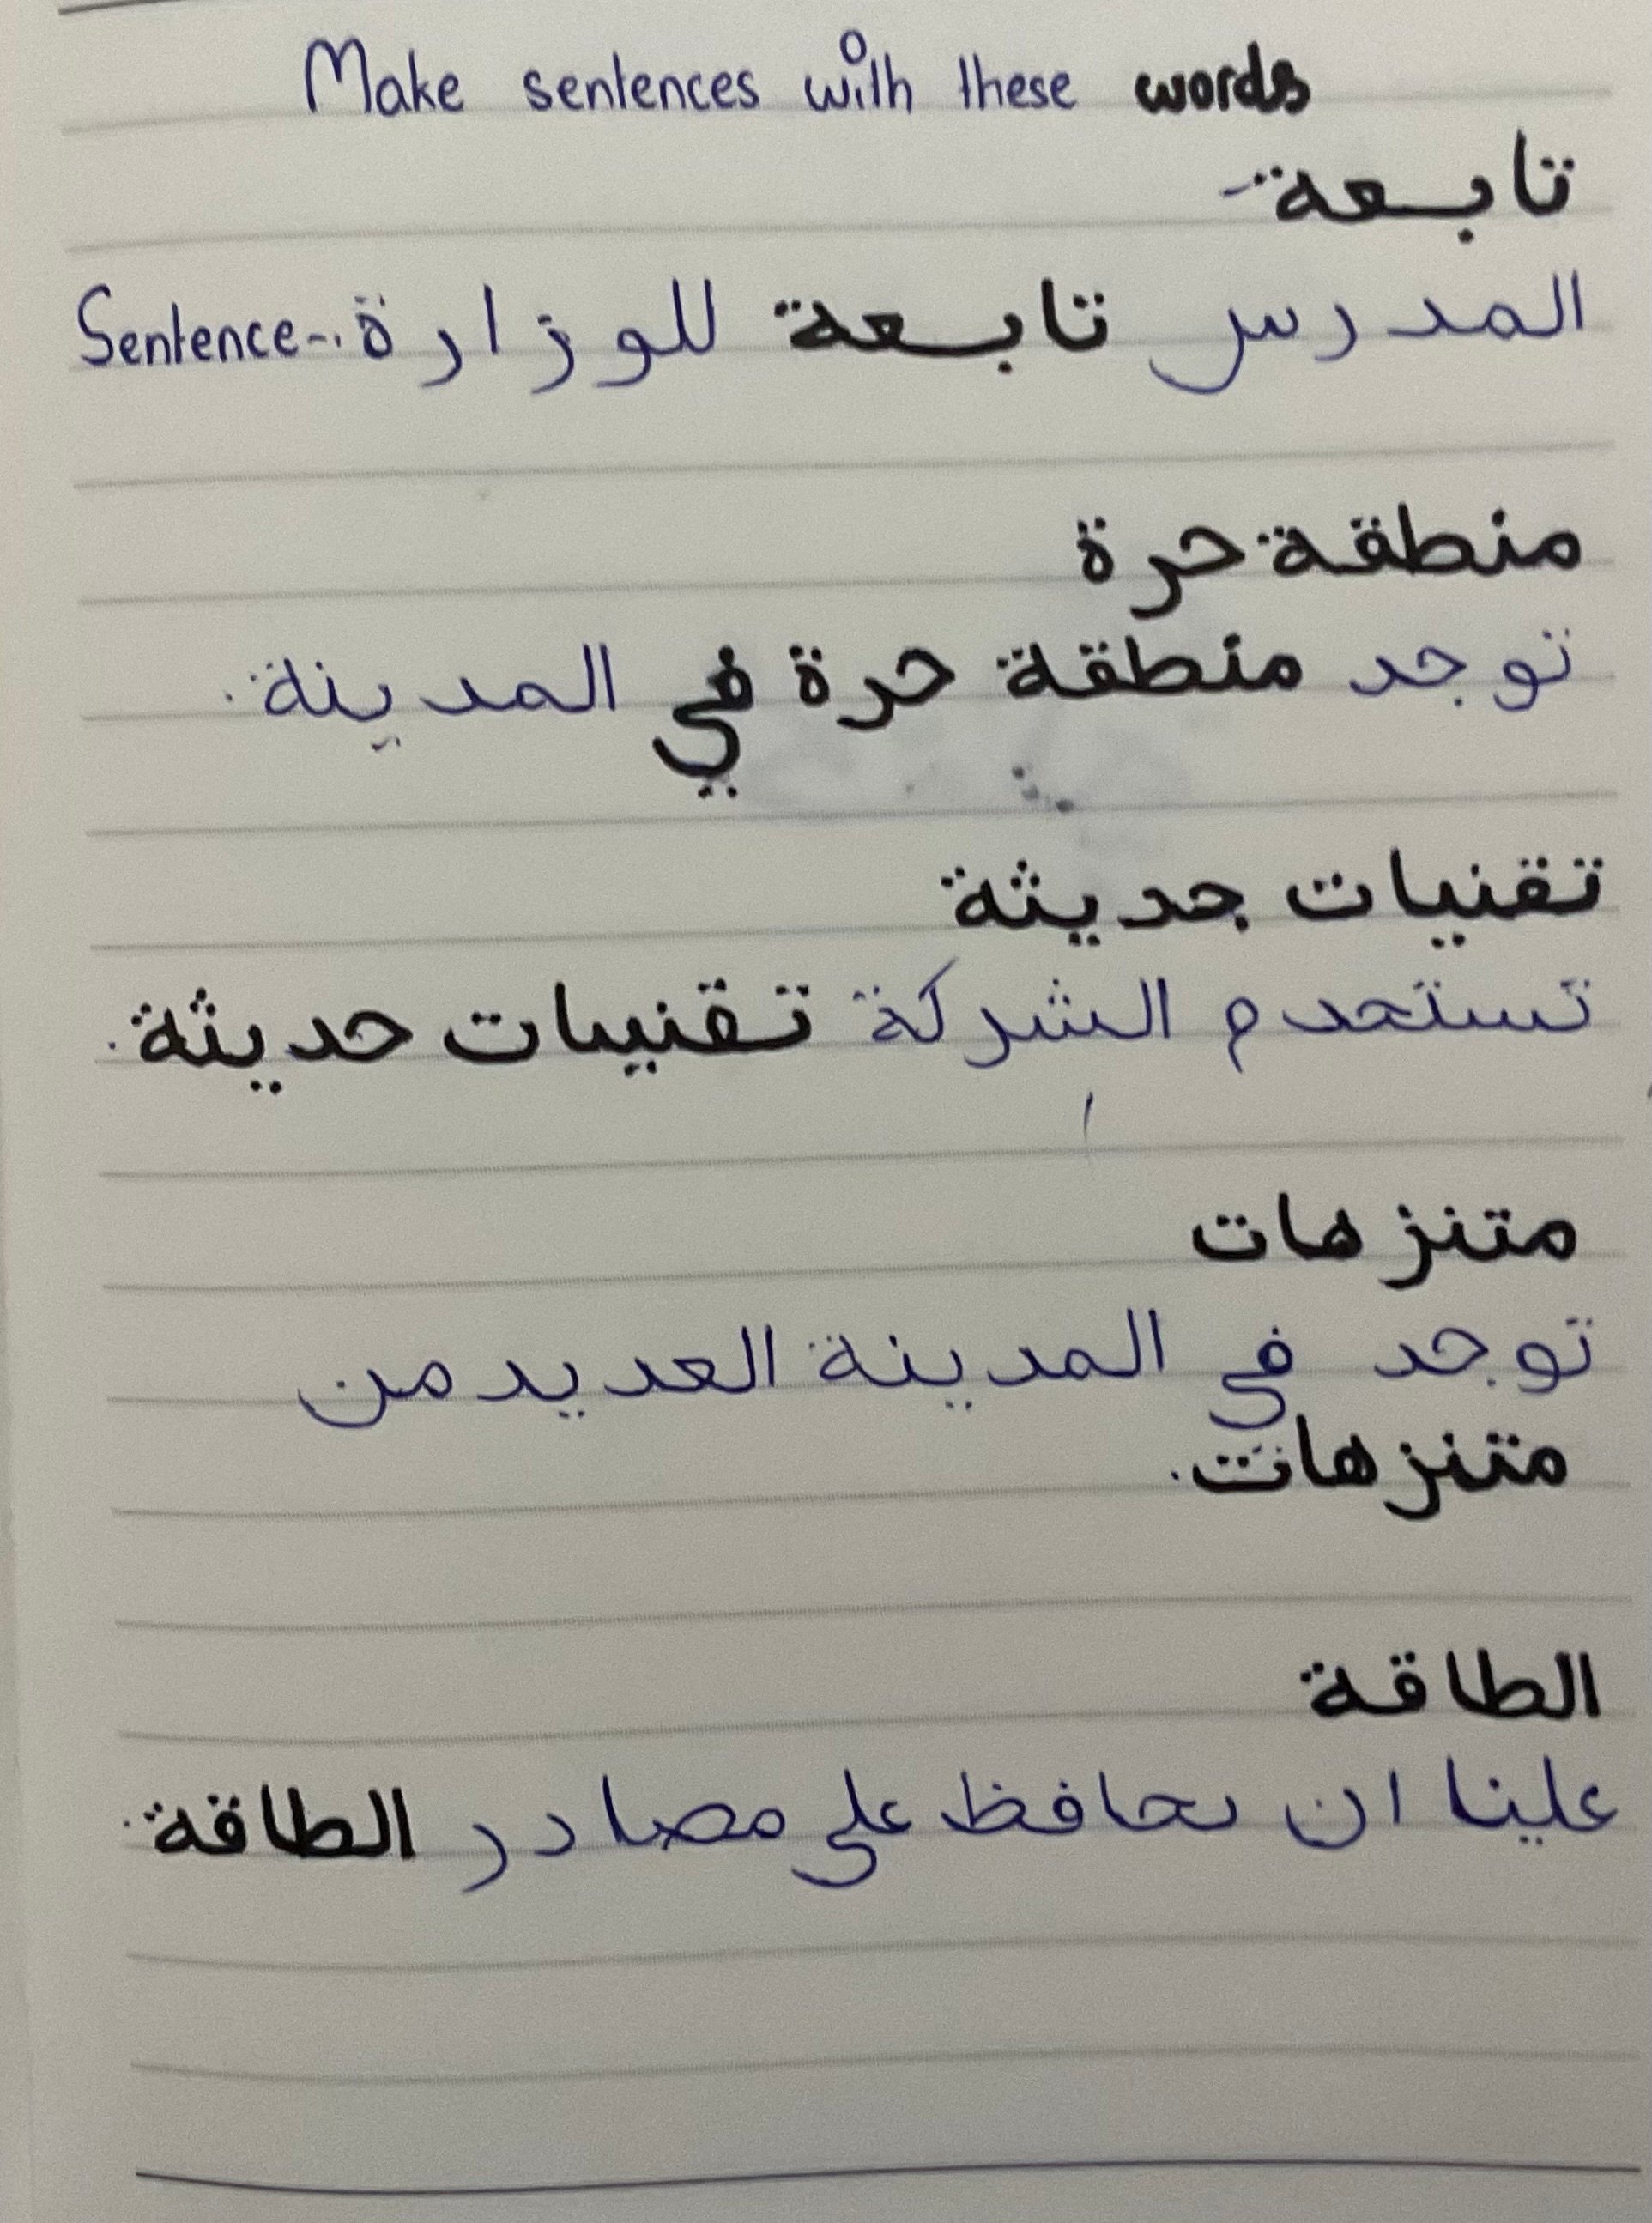 Make sentences with these words
تابعة-
المدرس تابعة للوزارة. Sentence-
منطقة حرة
توجد منطقة حرة في المدينة.
تقنيات جديثة
تستحدم الشركة تقنيات حديثة.
متنزهات
توجد في المدينة العديد من
متنزهات.
الطاقة
علينا ان نحافظ على مصادر الطاقة.